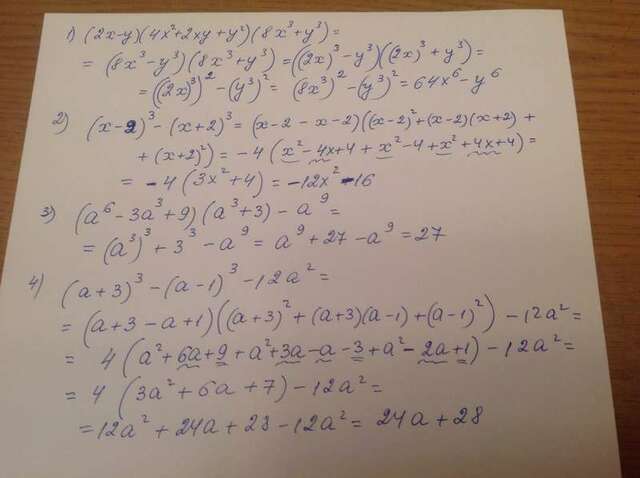 1) (2x-y)(4x²+2xy+y²)(8x³+y³)=
= (8x³-y³)(8x³+y³)=((2x)³-y³)((2x)³+y³)=
= ((2x)³)²-(y³)²= (8x³)²-(y³)²=64x⁶-y⁶
2) (x-2)³-(x+2)³= (x-2-x-2)((x-2)²+(x-2)(x+2)+
+(x+2)²)= -4(x²-4x+4+x²-4+x²+4x+4)=
= -4(3x²+4)=-12x²-16
3) (a⁶-3a³+9)(a³+3)-a⁹=
= (a³)³+3³-a⁹= a⁹+27-a⁹=27
4) (a+3)³-(a-1)³-12a²=
= (a+3-a+1)((a+3)²+(a+3)(a-1)+(a-1)²)-12a²=
= 4(a²+6a+9+a²+3a-a-3+a²-2a+1)-12a²=
= 4(3a²+6a+7)-12a²=
=12a²+24a+28-12a²= 24a+28